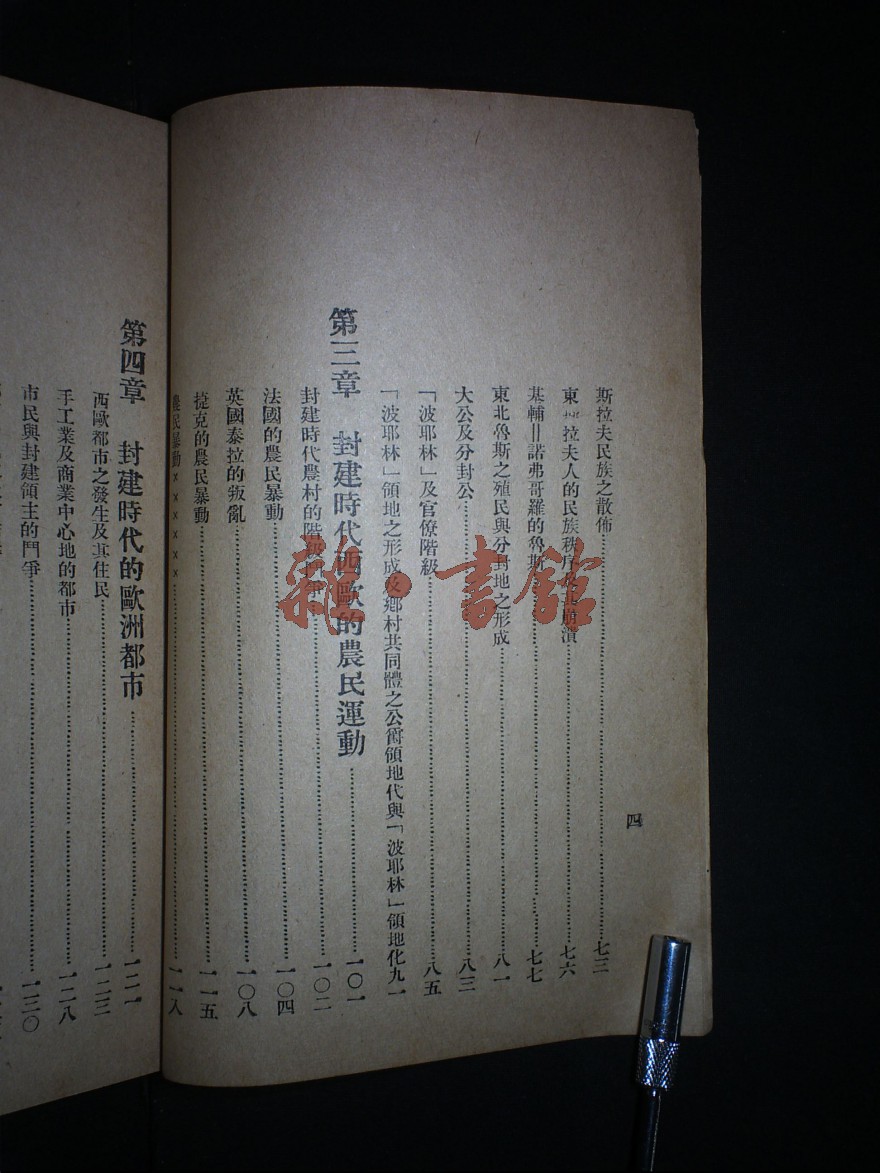 四
斯拉夫民族之散佈……七三
東斯拉夫人的民族秩序及其崩潰……七六
基輔＝諾弗哥羅的魯斯……七七
東北魯斯之殖民與分封地之形成……八一
大公及分封公……八三
「波耶林」及官僚階級……八五
「波耶林」領地之形成及鄉村共同體之公爵領地代與「波耶林」領地化九一
第三章　封建時代西歐的農民運動……一〇一
封建時代農村的階級鬥爭……一〇二
法國的農民暴動……一〇四
英國泰拉的叛亂……一〇八
捷克的農民暴動……一一五
農民暴動××××××……一一八
第四章　封建時代的歐洲都市……一二一
西歐都市之發生及其住民……一二三
手工業及商業中心地的都市……一二八
市民與封建領主的鬥爭……一三〇
雜·書館